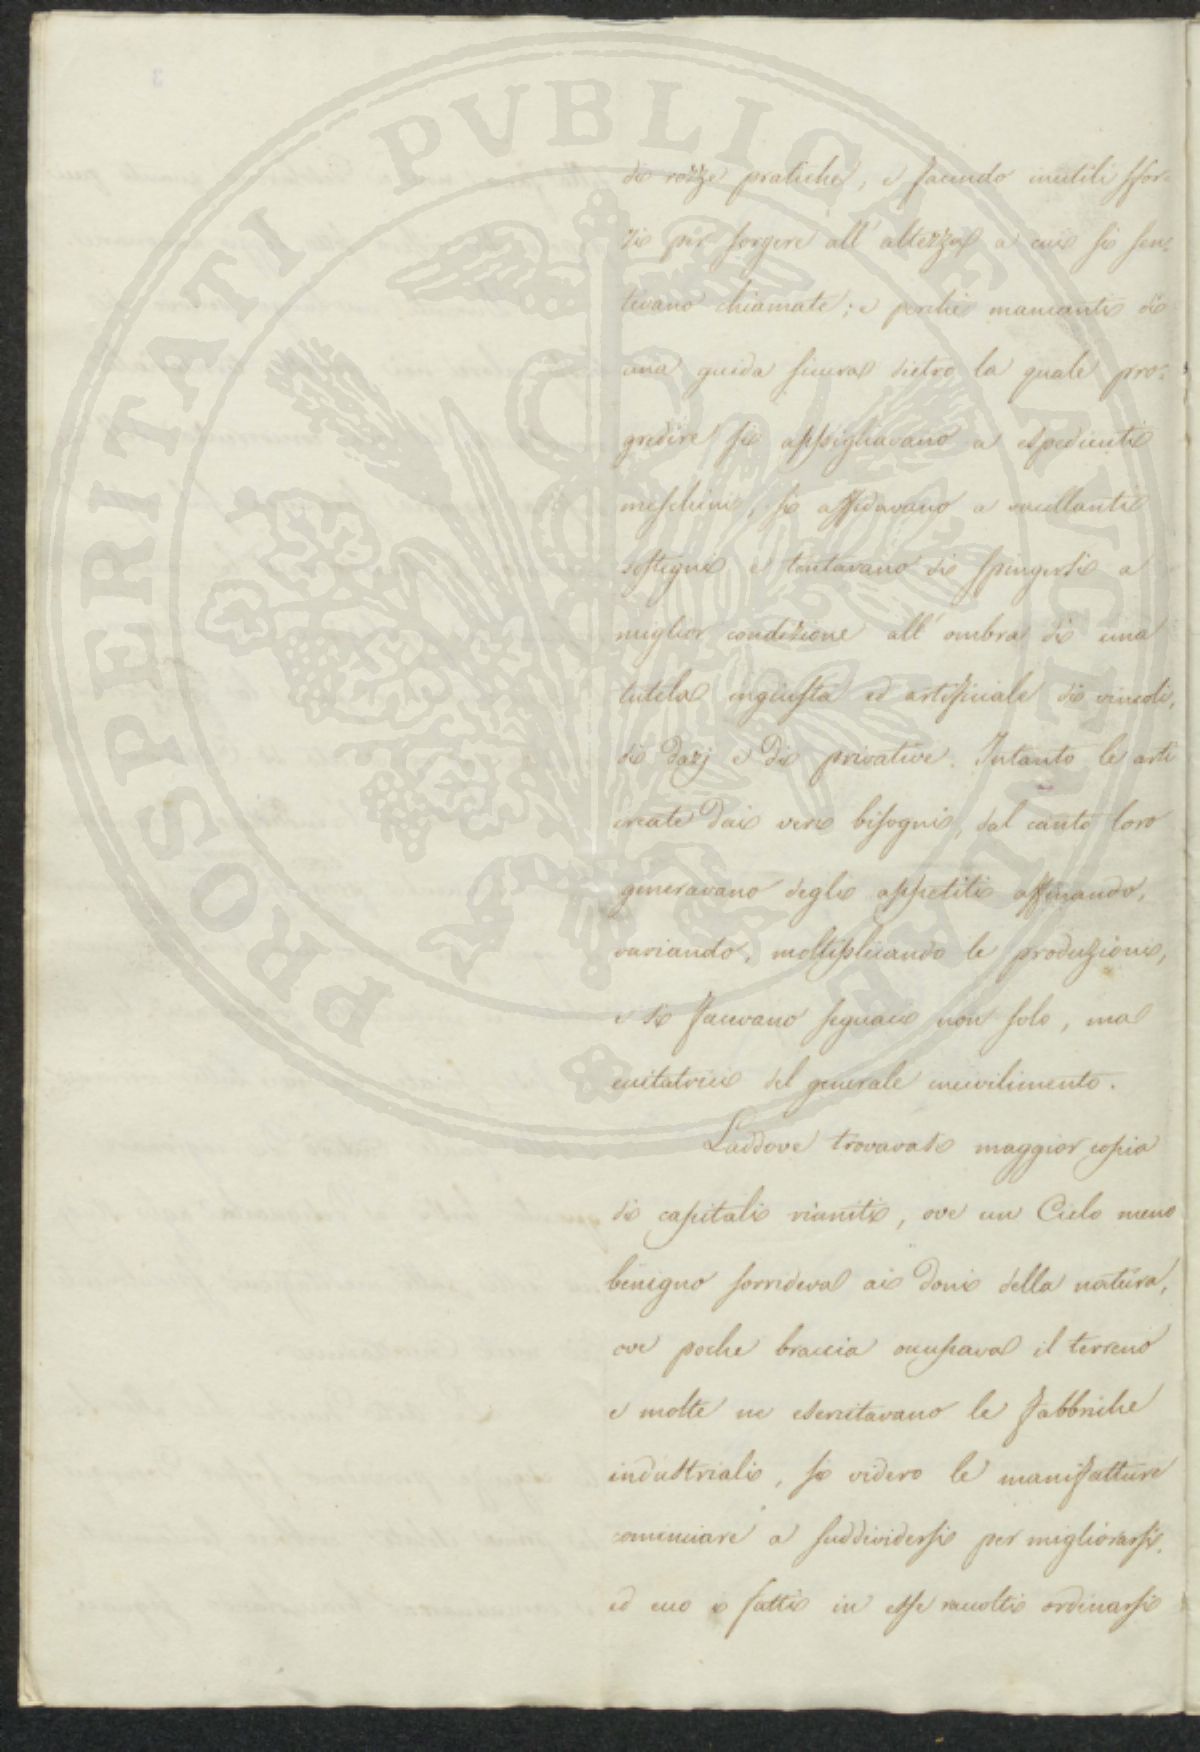 PROSPERITATI PVBLICAE AVGENDAE
di rozze pratiche, e facendo inutili sfor=
zi per sorgere all'altezza a cui si sen=
tivano chiamate; e perchè mancanti di
una guida sicura dietro la quale pro=
gredire si appigliavano a espedienti
meschini, si affidavano a vacillanti
sostegni e tentavano di spingersi a
miglior condizione all'ombra di una
tutela ingiusta ed artificiale di vincoli,
di Dazj e Di privative. Intanto le arti
create Dai veri bisogni, dal canto loro
generavano degli appetiti affinando,
variando, moltiplicando le produzioni,
e si facevano seguaci non solo, ma
eccitatrici del generale incivilimento.
Laddove trovavasi maggior copia
di capitali riuniti, ove un Cielo meno
benigno sorrideva ai Doni della natura,
ove poche braccia occupava il terreno
e molte ne esercitavano le fabbriche
industriali, si videro le manifatture
cominciare a suddividersi per migliorarsi,
ed ecco i fatti in esse raccolti ordinarsi